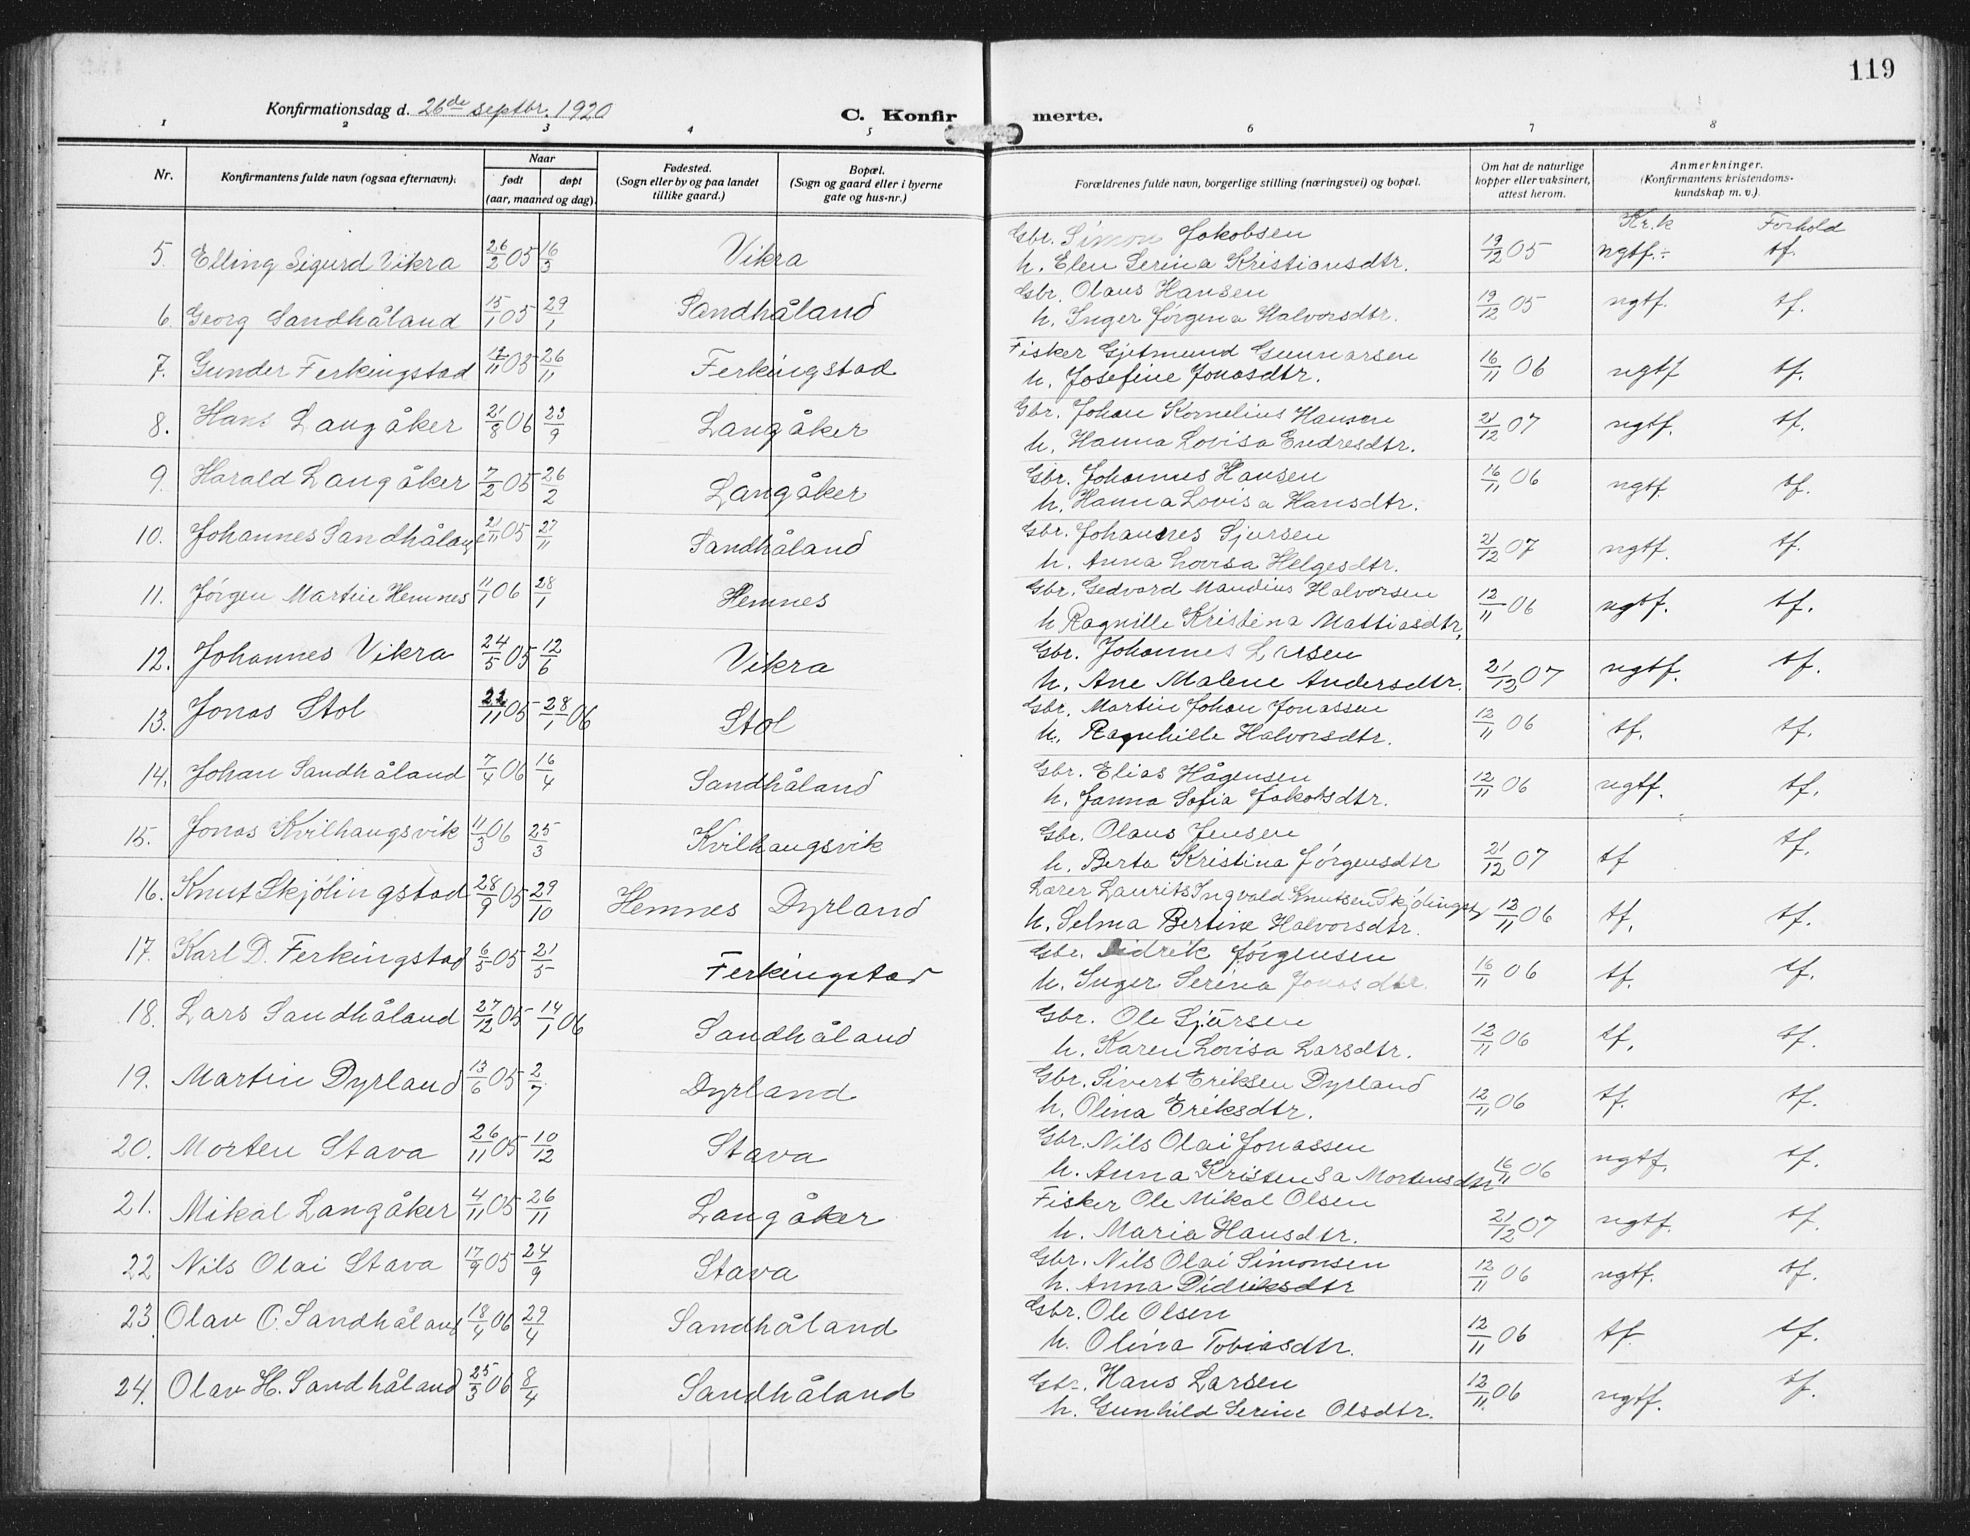 119
Konfirmationsdag d. 26de septbr. 1920
C. Konfir merte.
1 2 3 4 5 6 7 8
Nr.
Konfirmantens fulde navn (ogsaa efternavn).
Naar
født døpt
(aar, maaned og dag).
Fødested.
(Sogn eller by og paa landet
tillike gaard.)
Bopæl.
(Sogn og gaard eller i byerne
gate og hus-nr.)
Forældrenes fulde navn, borgerlige stilling (næringsvei) og bopæl.
Om hat de naturlige
kopper eller vaksinert,
attest herom.
Anmerkninger.
(Konfirmantens kristendoms-
kundskap m. v.).
Kr.k Forhold
5. Elling Sigurd Vikra 26/2 05 16/3 Vikra Gbr. Simon Jakobsen
h. Elen Serina Kristiansdtr. 19/12 05 ngtf.÷ tf.
6. Georg Sandhåland 15/1 05 29/1 Sandhåland Gbr. Olaus Hansen
h. Inger Jørgena Halvorsdtr. 19/12 05 ngtf. tf.
7. Gunder Ferkingstad 12/11 05 26/11 Ferkingstad Fisker Gjetmund Gunnarsen
h. Josefine Jonasdtr. 16/11 06 ngtf tf.
8. Hans Langåker 21/8 06 23/9 Langåker Gbr. Johan Kornelius Hansen
h. Hanna Lovisa Endresdtr. 21/12 07 ngtf. tf.
9. Harald Langåker 7/2 05 26/2 Langåker Gbr. Johannes Hansen
h. Hanna Lovisa Hansdtr. 16/11 06 ngtf tf.
10. Johannes Sandhåland 21/11 05 27/11 Sandhåland Gbr. Johannes Sjursen
h. Anna Lovisa Helgesdtr. 21/12 07 ngtf. tf.
11. Jørgen Martin Hemnes 11/1 06 28/1 Hemnes Gbr. Gedvard Mandius Halvorsen
h Ragnille Kristina Mattiasdtr, 12/11 06 ngtf. tf.
12. Johannes Vikra 24/5 05 12/6 Vikra Gbr. Johannes Larsen
h. Ane Malene Andersdtr. 21/12 07 ngtf. tf.
13. Jonas Stol 22/11 05 28/1 06 Stol Gbr. Martin Johan Jonassen
h. Ragnhille Halvorsdtr. 12/11 06 tf. tf.
14. Johan Sandhåland 7/4 06 16/4 Sandhåland Gbr. Elias Hågensen
h. Janna Sofia Jakobsdtr. 12/11 06 ngtf. tf.
15. Jonas Kvilhaugsvik 11/3 06 25/3 Kvilhaugsvik Gbr. Olaus Jensen
h. Berta Kristina Jørgensdtr 21/12 07 tf tf.
16. Knut Skjølingstad 28/9 05 29/10 Hemnes Dyrland Lærer Laurits Ingvald Knutsen Skjølingst
h. Selma Bertine Halvorsdtr. 12/11 06 tf. tf.
17. Karl D. Ferkingstad 6/5 05 21/5 Ferkingstad Gbr. Didrik Jørgensen
h. Inger Serina Jonasdtr. 16/11 06 tf. tf.
18. Lars Sandhåland 27/12 05 14/1 06 Sandhåland Gbr. Ole Sjursen
h. Karen Lovisa Larsdtr. 12/11 06 tf. tf.
19. Martin Dyrland 13/6 05 2/7 Dyrland Gbr. Sivert Eriksen Dyrland
h. Olina Eriksdtr. 12/11 06 tf. tf.
20. Morten Stava 26/11 05 10/12 Stava Gbr. Nils Olai Jonassen
h. Anna Kristensa Mortensdtr 16/11 06 ngtf. tf.
21. Mikal Langåker 4/11 05 26/11 Langåker Fisker Ole Mikal Olsen
h. Maria Hansdtr. 21/12 07 ngtf. tf.
22 Nils Olai Stava 17/9 05 24/9 Stava Gbr. Nils Olai Simonsen
h. Anna Didriksdtr 12/11 06 ngtf. tf.
23. Olav O. Sandhåland 18/4 06 29/4 Sandhåland Gbr. Ole Olsen
h. Olina Tobiasdtr. 12/11 06 tf. tf.
24. Olav H. Sandhåland 25/3 06 8/4 Sandhåland Gbr. Hans Larsen
h. Gunhild Serine Olsdtr. 12/11 06 ngtf. tf.